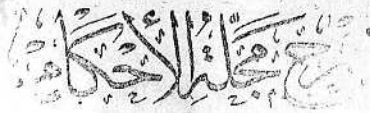 شرح مجلة الأحكام